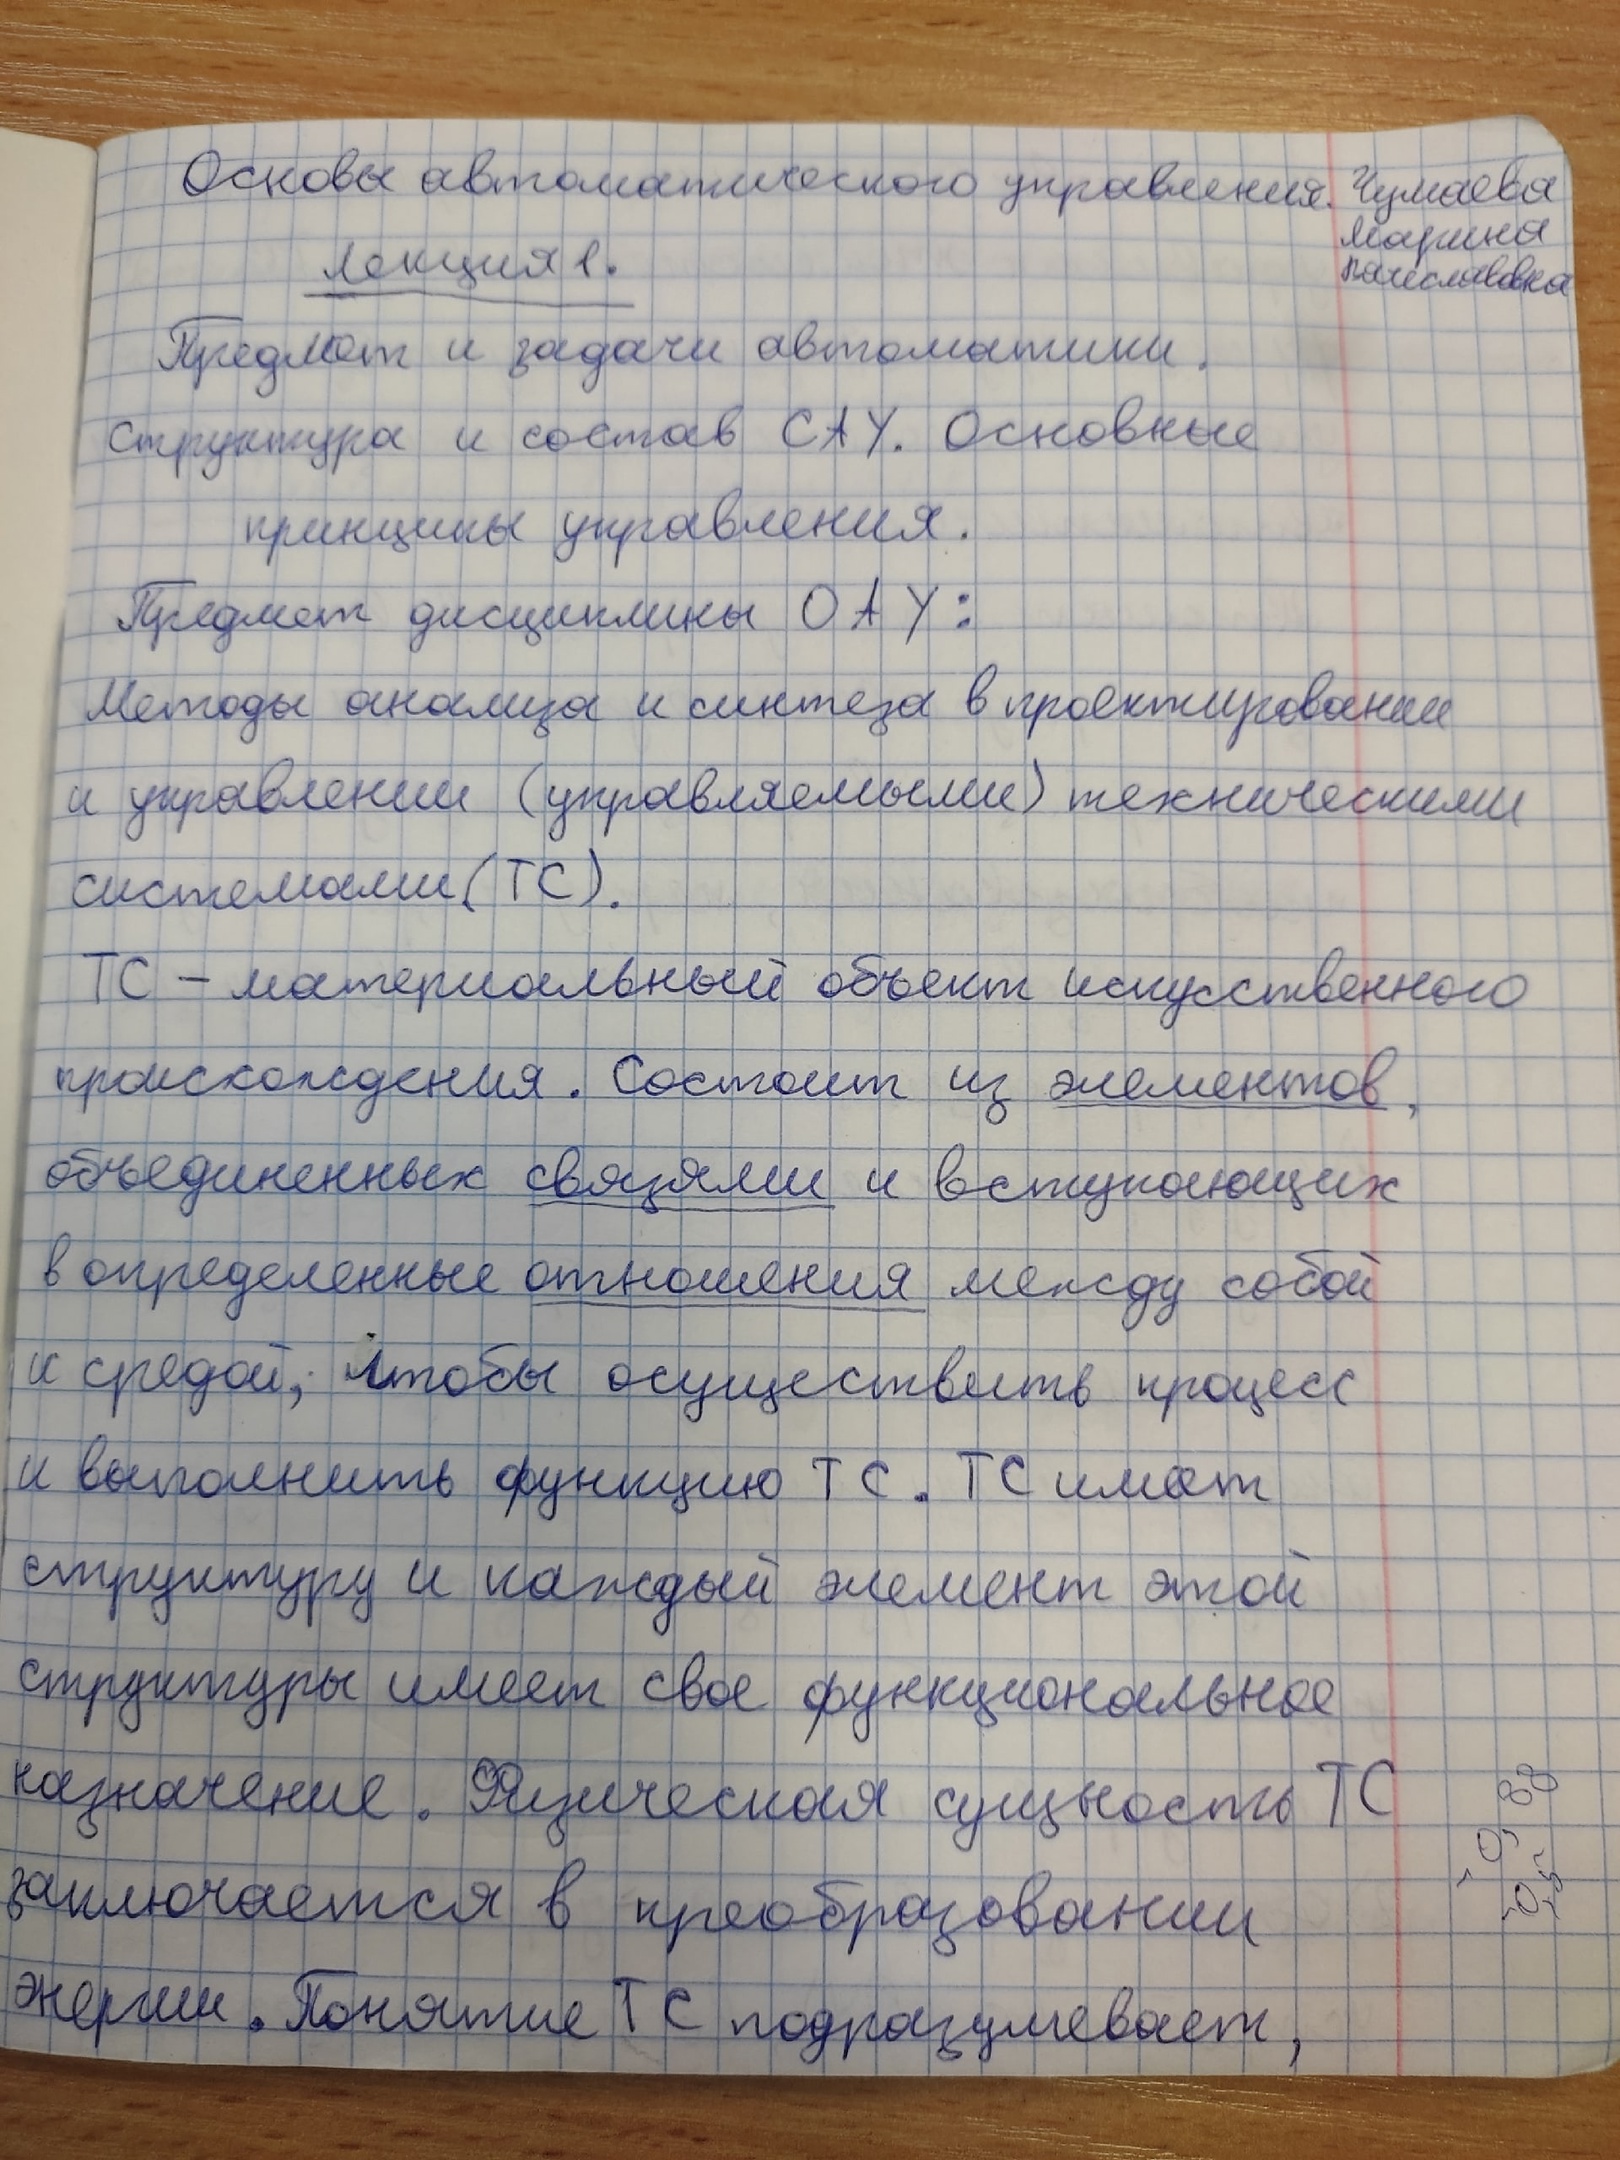 Основы автоматического управления. Чумаева
Марина
Лекция 1.
Предмет и задачи автоматики.
Структура и состав САУ. Основные
принципы управления.
Предмет дисциплины ОАУ:
Методы анализа и синтеза в проектировании
и управлении (управляемыми) техническими
системами (ТС).
ТС – материальный объект искусственного
происхождения. Состоит из элементов,
объединенных связями и вступающих
в определенные отношения между собой
и средой, чтобы осуществить процесс
и выполнить функцию ТС. ТС имеет
структуру и каждый элемент этой
структуры имеет свое функциональное
назначение. Физическая сущность ТС
заключается в преобразовании
энергии. Понятие ТС подразумевает,